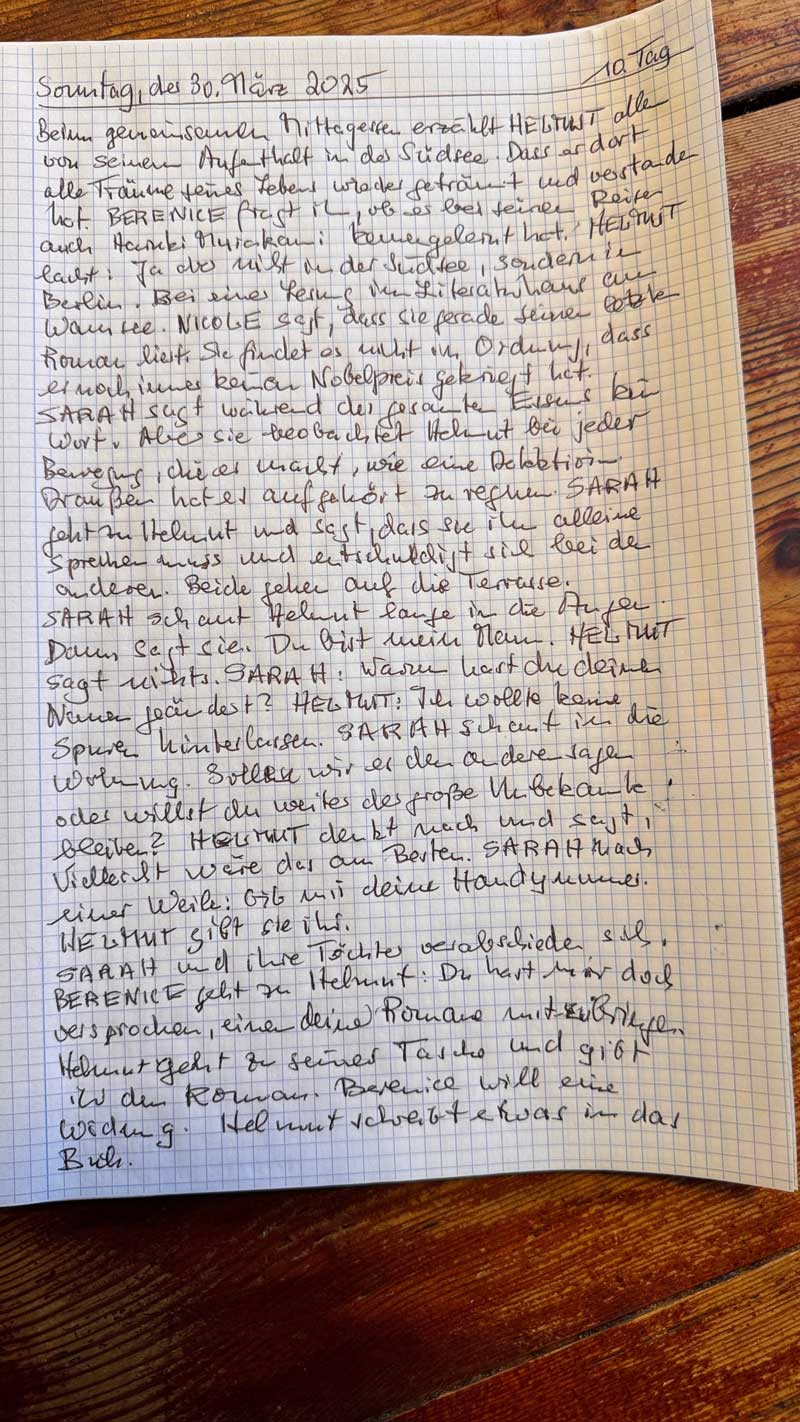 Sonntag, des 30. März 2025 10. Tag
Beim gemeinsamen Mittagessen erzählt HELMUT allen
von seinem Aufenthalt in der Südsee. Dass er dort
alle Träume seines Lebens wieder geträumt und verstanden
hat. BERENICE fragt ihn, ob er bei seinen Reisen
auch Haruki Murakami kennengelernt hat. HELMUT
lacht: Ja aber nicht in der Südsee, sondern in
Berlin. Bei einer Lesung im Literaturhaus am
Wannsee. NICOLE sagt, dass sie gerade seinen letzten
Roman liest. Sie findet es nicht in Ordnung, dass
er noch immer keinen Nobelpreis gekriegt hat.
SARAH sagt während des gesamten Essens kein
Wort. Aber sie beobachtet Helmut bei jeder
Bewegung, die er macht, wie eine Detektivin.
Draußen hat es aufgehört zu regnen. SARAH
geht zu Helmut und sagt, dass sie ihn alleine
sprechen muss und entschuldigt sich bei den
anderen. Beide gehen auf die Terrasse.
SARAH schaut Helmut lange in die Augen.
Dann sagt sie. Du bist mein Mann. HELMUT
sagt nichts. SARAH: Warum hast du deinen
Namen geändert? HELMUT: Ich wollte keine
Spuren hinterlassen. SARAH schaut in die
Wohnung. Sollen wir es den anderen sagen
oder willst du weiter der große Unbekannte
bleiben? HELMUT denkt nach und sagt,
Vielleicht wäre das am Besten. SARAH nach
einer Weile: Gib mir deine Handynummer.
HELMUT gibt sie ihr.
SARAH und ihre Töchter verabschieden sich.
BERENICE geht zu Helmut: Du hast mir doch
versprochen, einen deiner Romane mitzubringen.
Helmut geht zu seiner Tasche und gibt
ihr den Roman. Berenice will eine
Widmung. Helmut schreibt etwas in das
Buch.